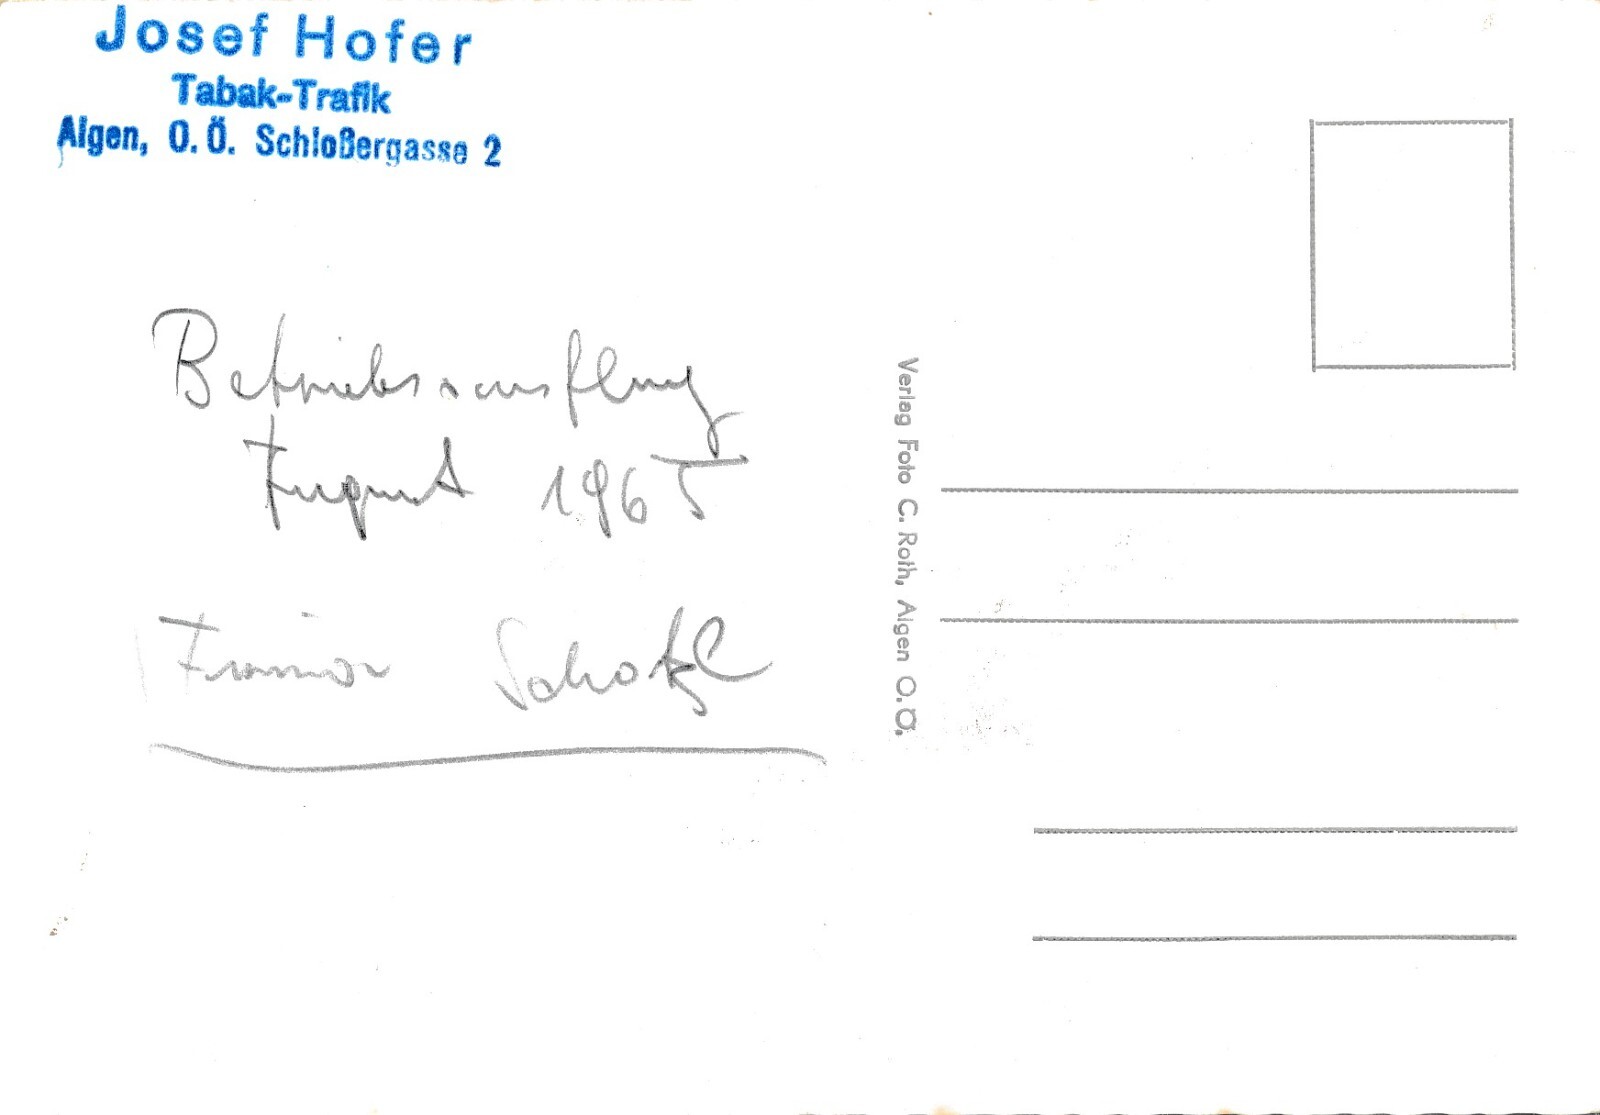 Josef Hofer
Tabak-Trafik
Aigen, O.Ö. Schloßergasse 2
Betriebsausflug
August 1965
Schatzl
Verlag Foto C. Roth, Aigen O.Ö.